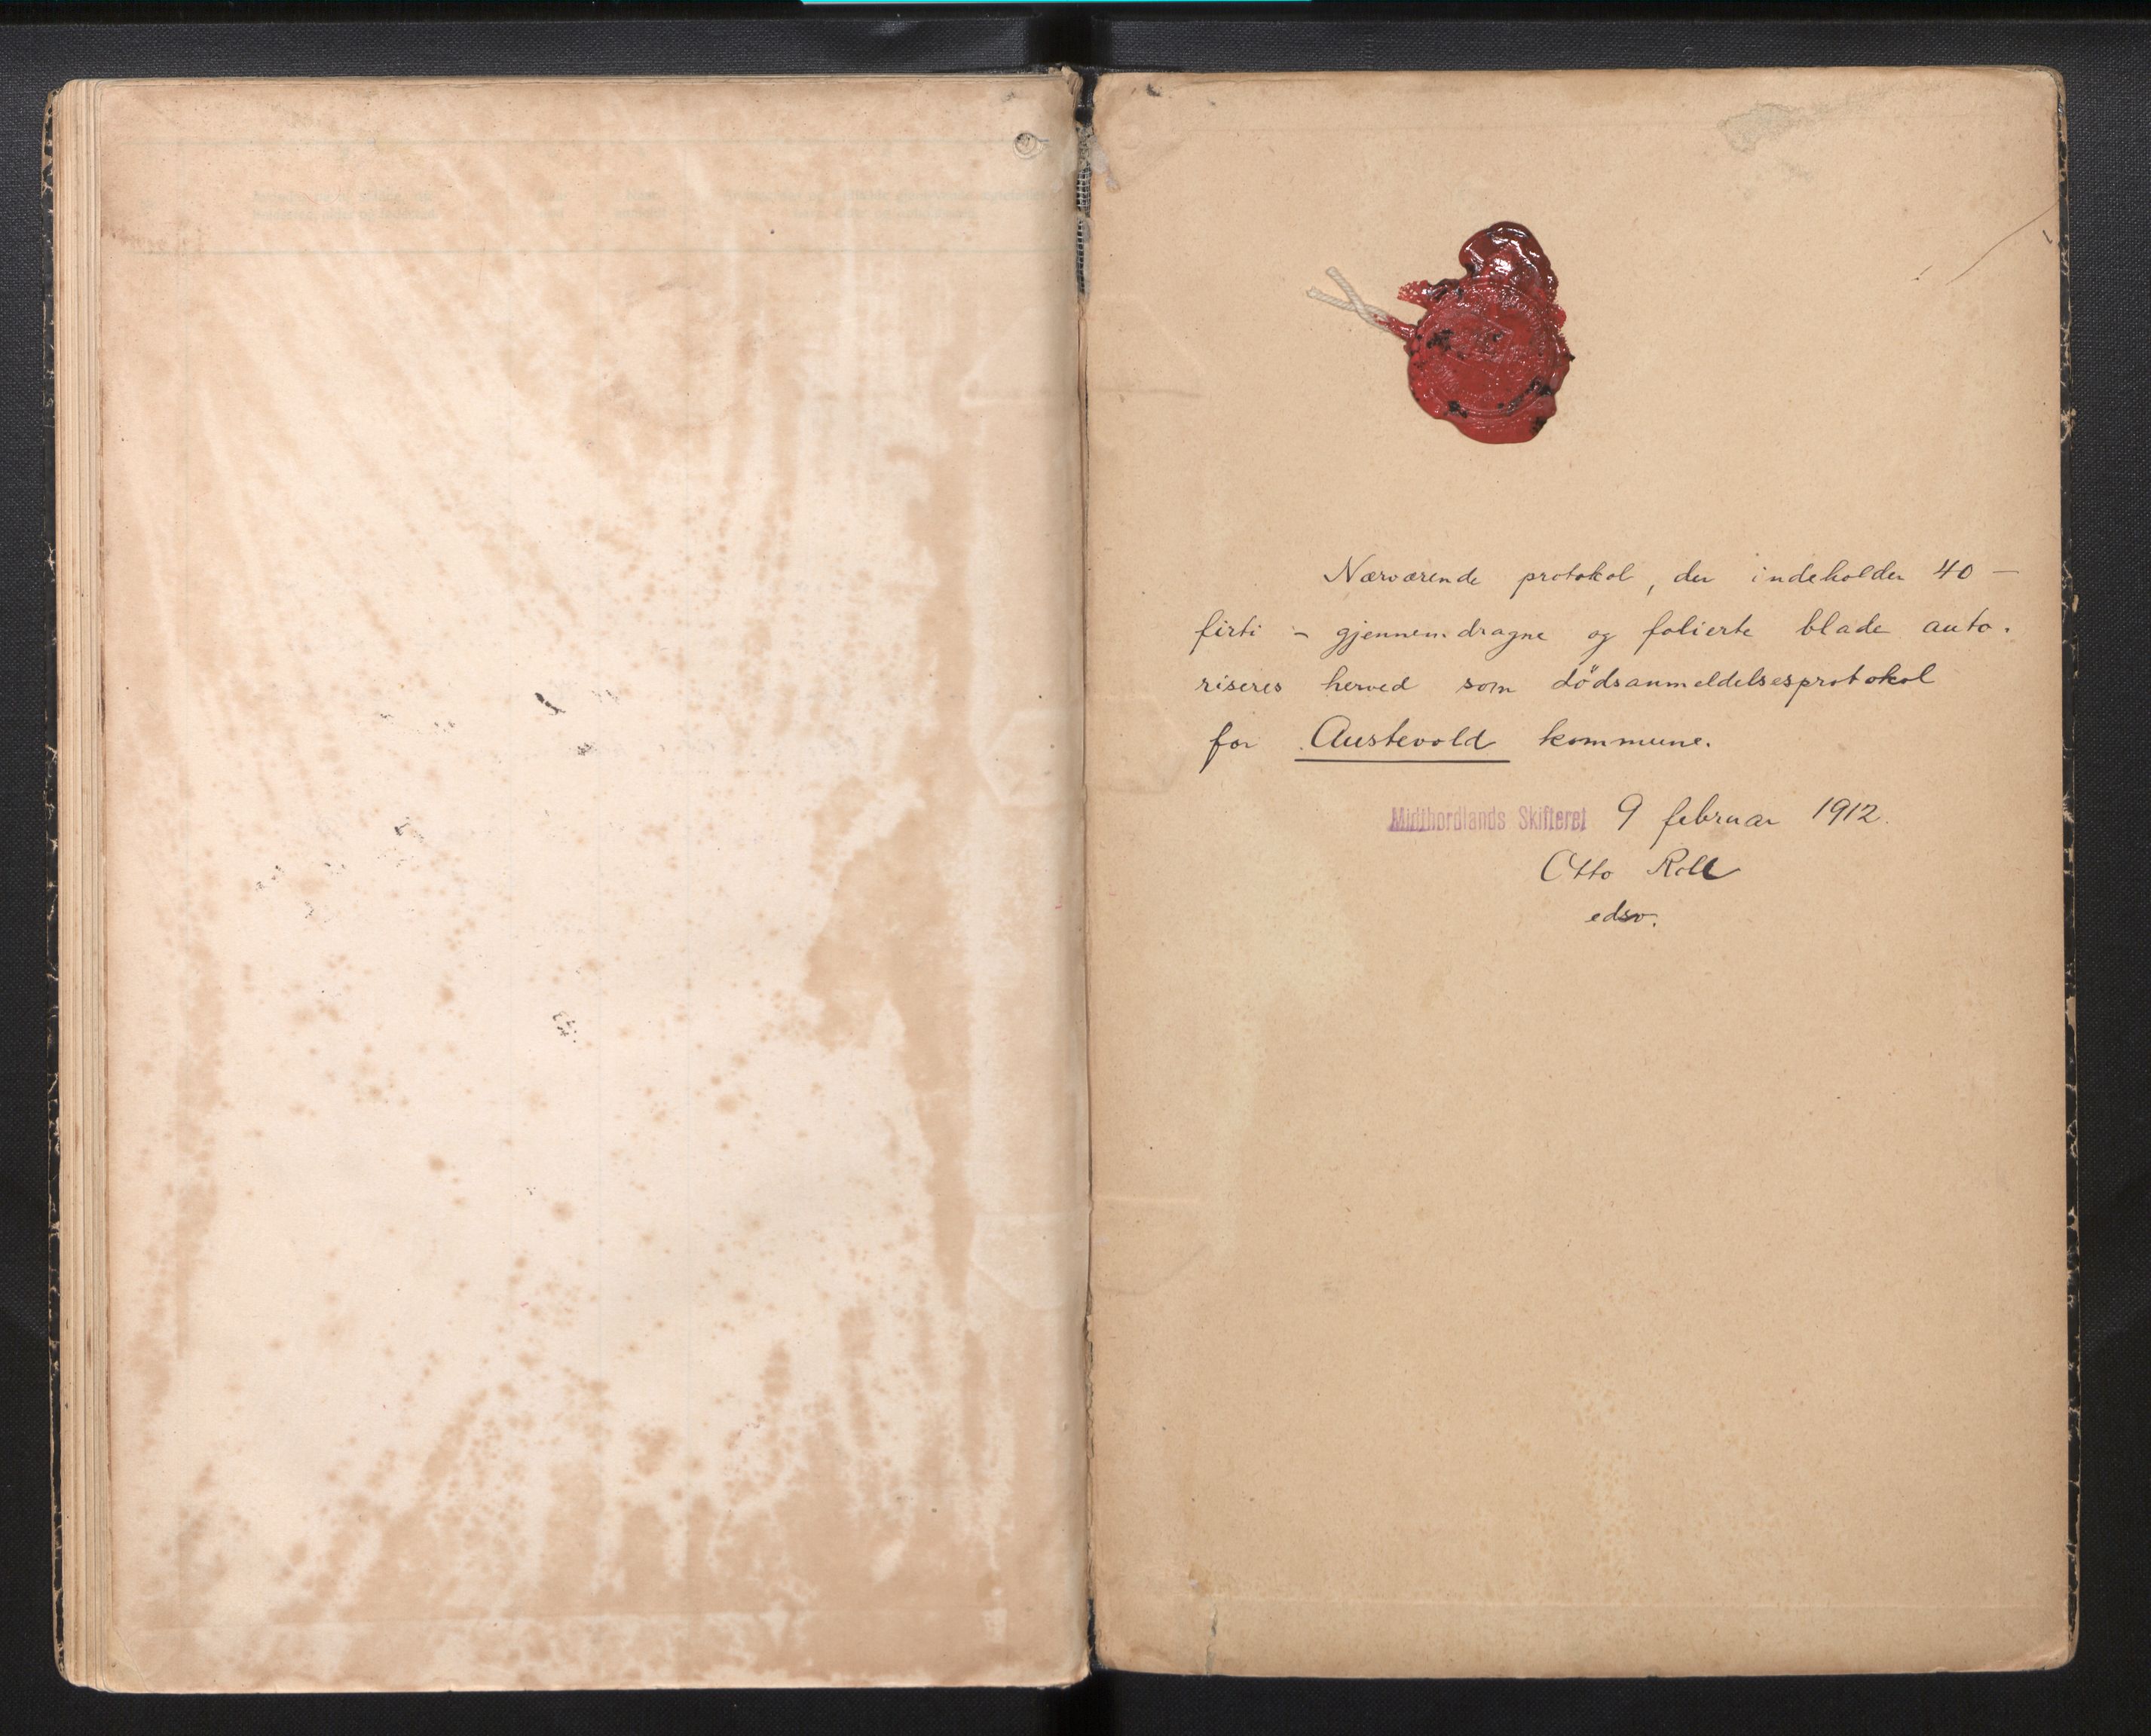 Nærværende protokol, der indeholder 40 –
firti – gjennemdragne og folierte blade auto-
riseres herved som dödsanmeldelsesprotokol
for Austevold kommune.
Midthordlands Skifteret 9 februar 1912.
Otto Roll
edsv.